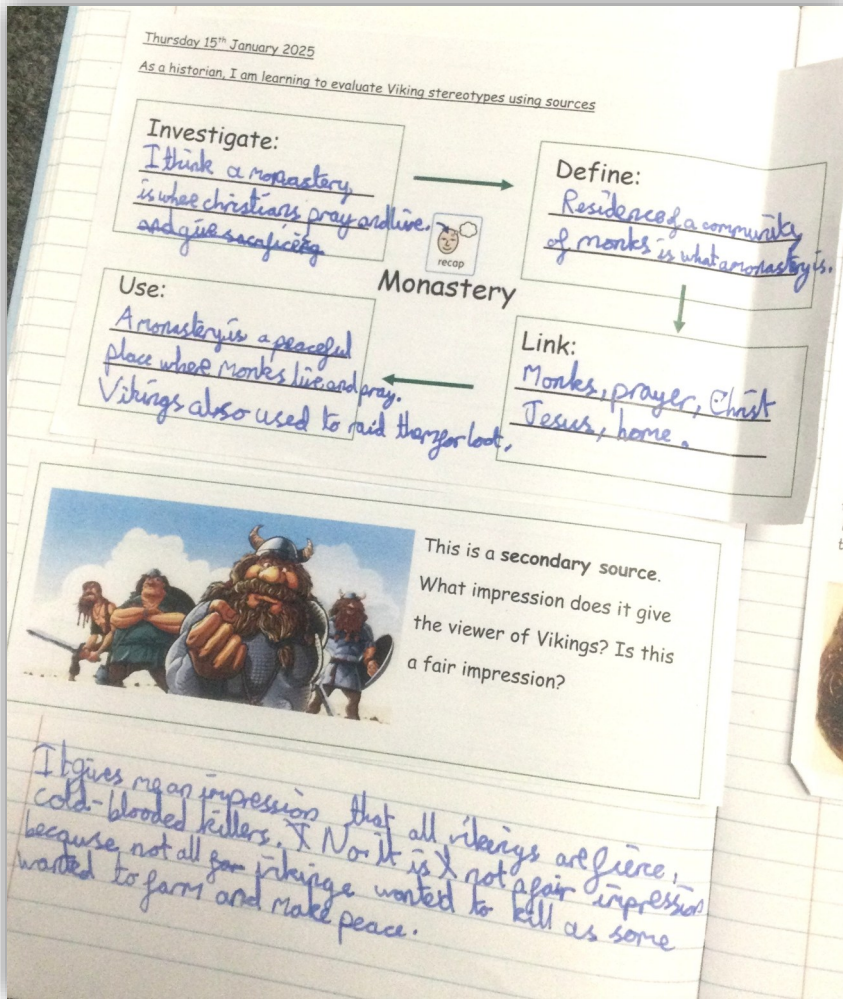 Thursday 15th January 2025
As a historian, I am learning to evaluate Viking stereotypes using sources
Investigate:
I think a monastery
is where christians pray and live.
and give sacrificing
Define:
Residence of a community
of monks is what a monastery is.
recap
Monastery
Use:
A monastery is a peaceful
place where Monks live and pray.
Vikings also used to raid them for loot.
Link:
Monks, prayer, Christ
Jesus, home.
This is a secondary source.
What impression does it give
the viewer of Vikings? Is this
a fair impression?
It gives me an impression that all vikings are fierce,
cold-blooded killers. X No it is X not a fair impression
because not all for vikings wanted to kill as some
wanted to farm and make peace.